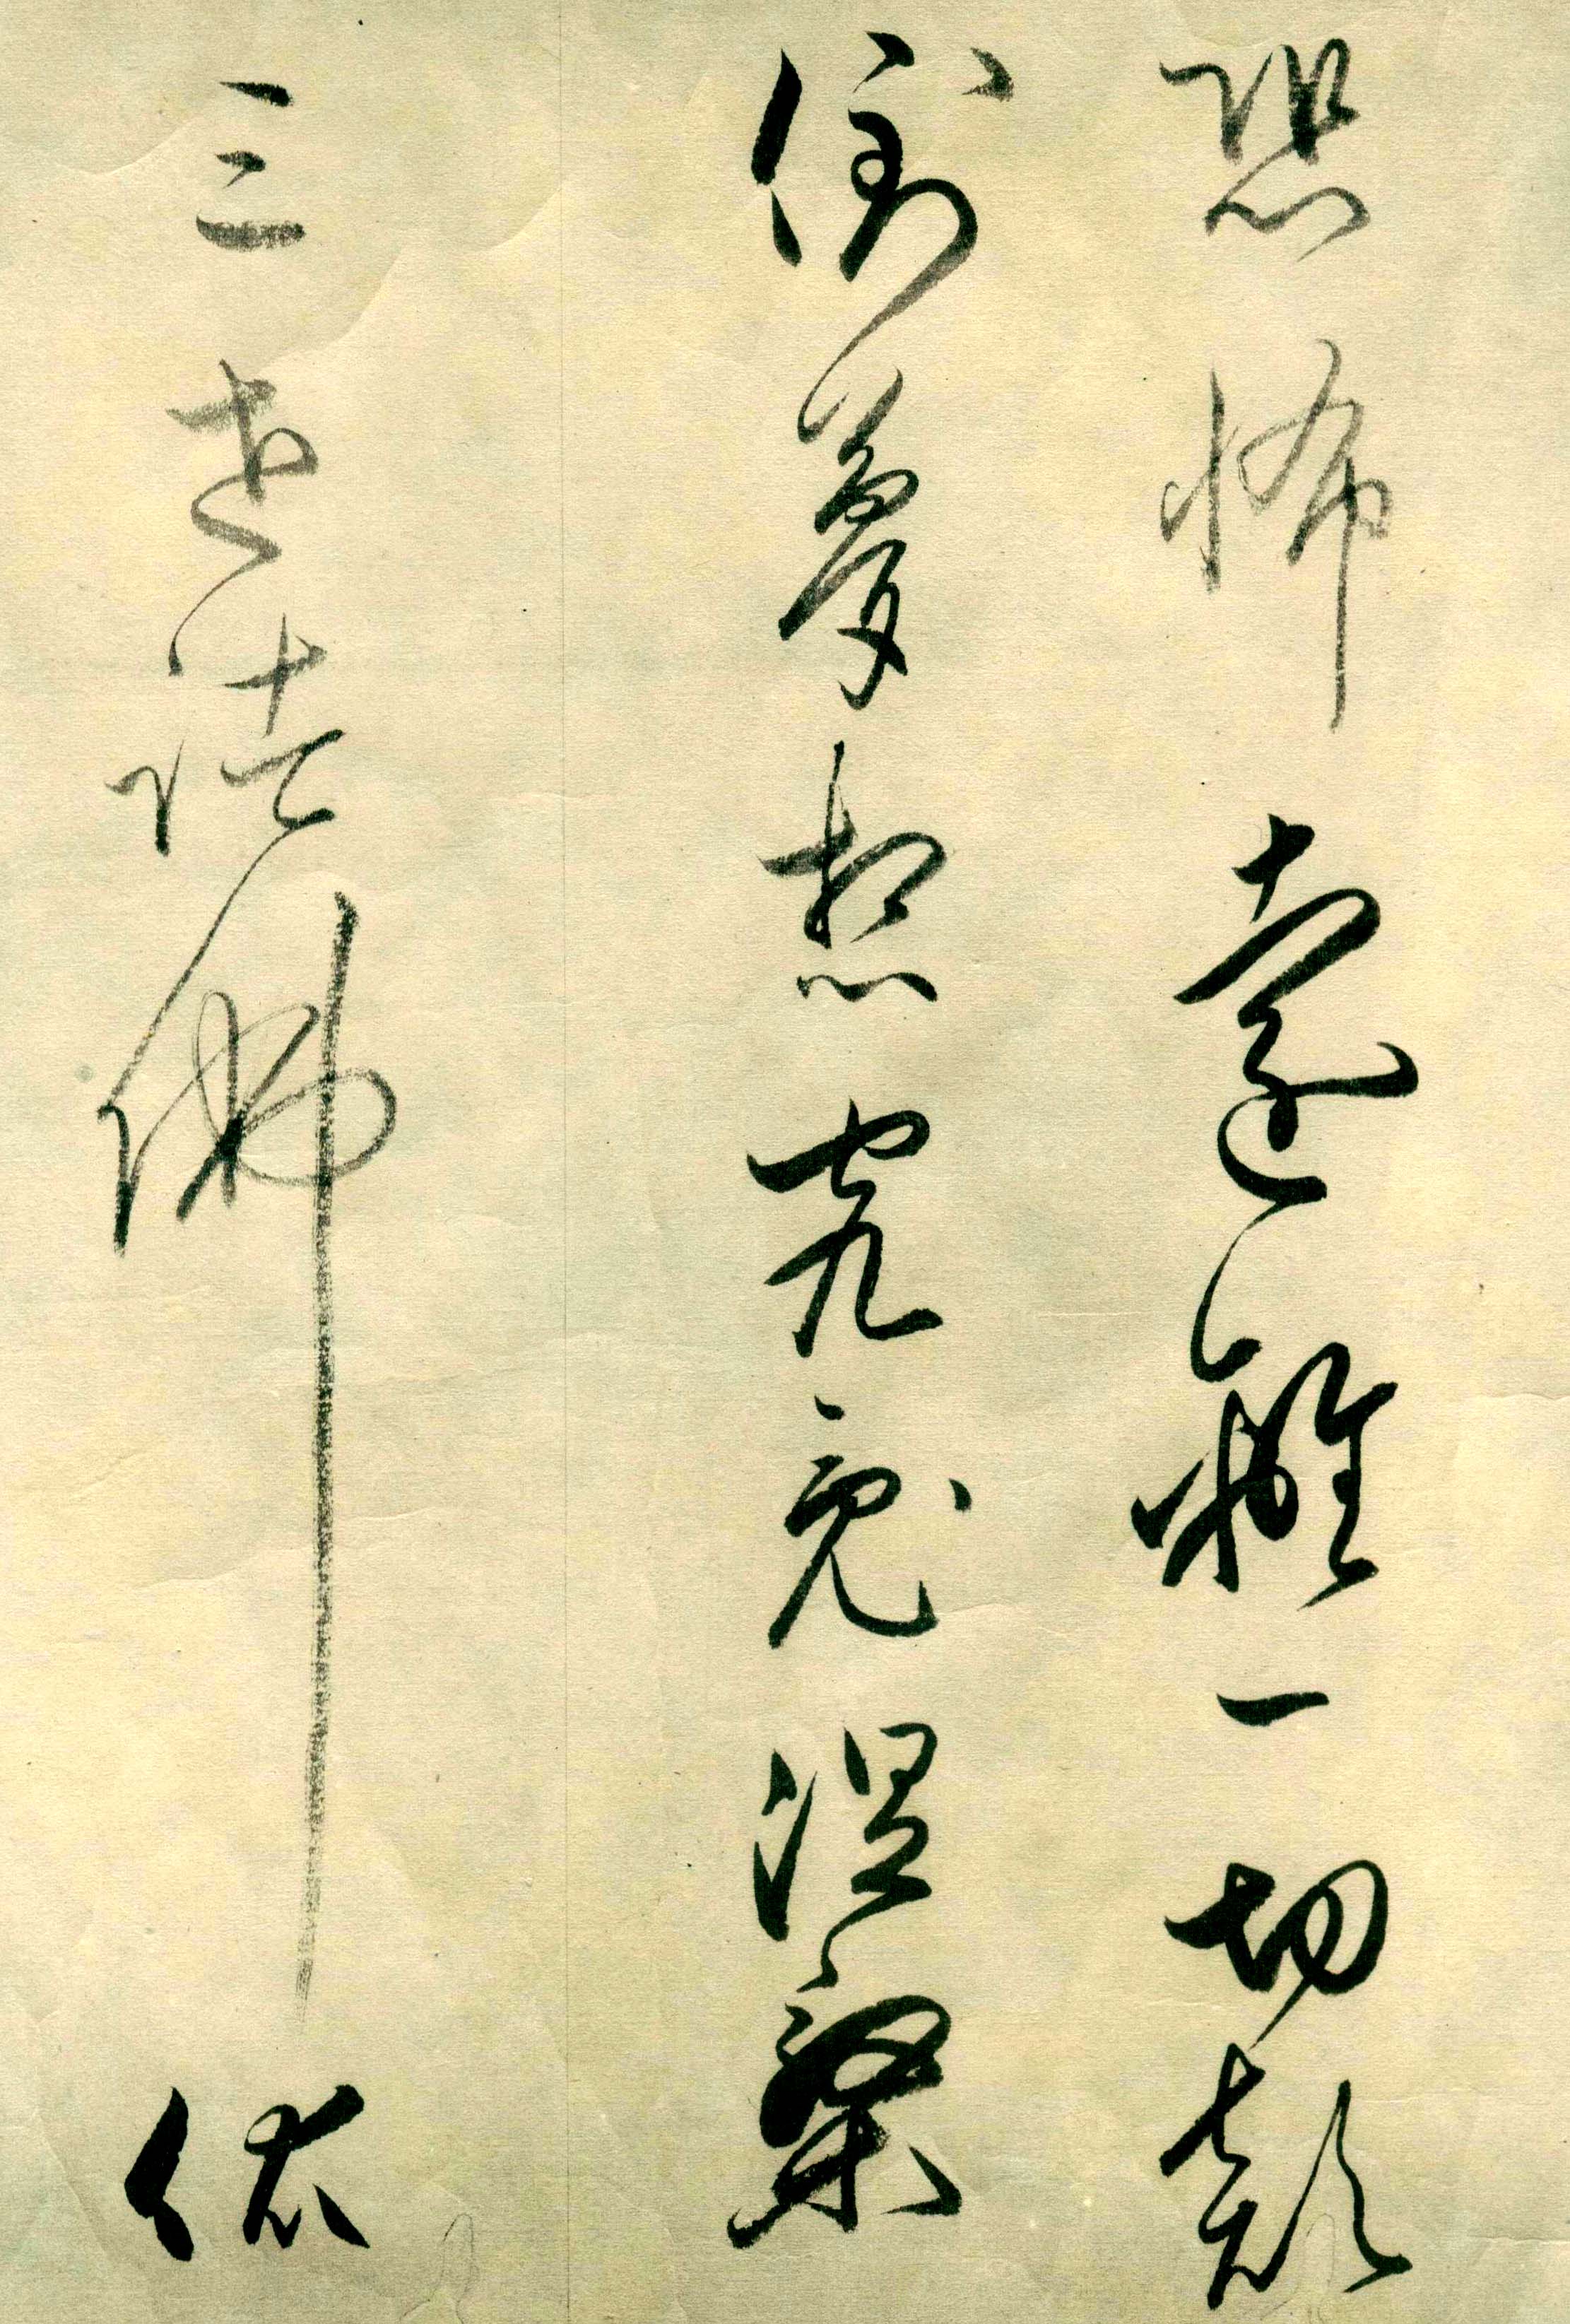 恐怖遠離一切顛
倒夢想究竟涅槃
三世諸佛依